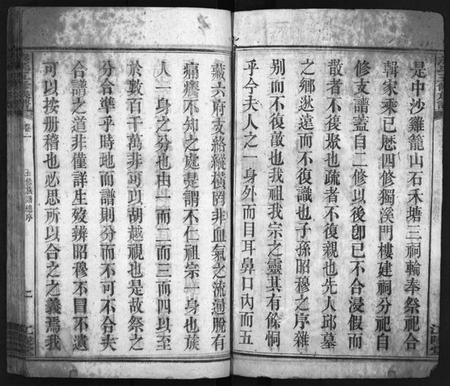 是中沙雞籠山石禾塘三祠輪奉祭祀合
輯家乘已歷四修獨溪門樓建祠分祀自
修支譜蓋自二修以後卽已不合浸假而
散者不復聚也疏者不復親也先人邱墓
之鄉遂遠而不復識也子孫昭穆之序雜
别而不復敬也我祖我宗之靈其有餘恫
乎今夫人之一身外而目耳鼻口內而五
藏六府支絡縱橫罔非血氣之流溥脫有
痛癢不知之處是謂不仁祖宗一身也族
人一身之分也由一而二而三而四以至
於數百千萬非可以胡越視也是故祭之
分合準乎時地而譜則分而不可不合夫
合譜之道非僅詳生歿辨昭穆不目不遺
可以按册稽也必思所以合之之義焉我
卷一
二